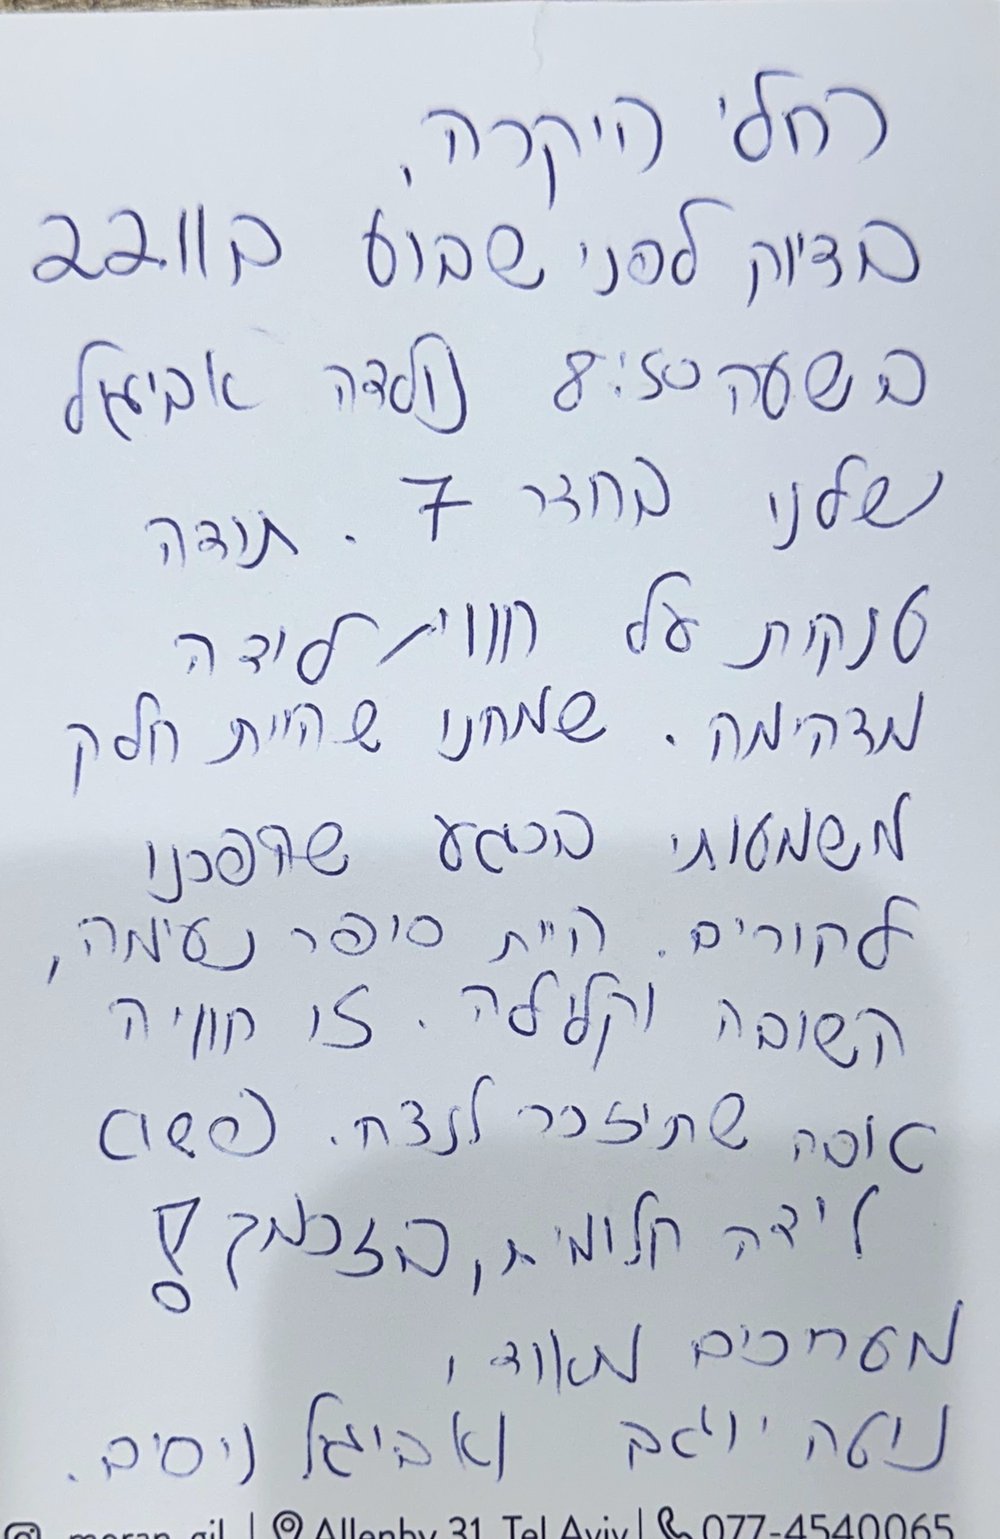 רחלי היקרה,
בדיוק לפני שבוע ב22.11
בשעה 8:50 נולדה אביגיל
שלנו בחדר 7. תודה
ענקית על חווית לידה
מדהימה. שמחנו שהיית חלק
משמעותי ברגע שהפכנו
להורים. היית סופר נעימה,
קשובה וקלילה. זו חוויה
אופה שתיזכר לנצח. פשוט
לידה חלומית, בזכותך!
מעריכים מאוד,
נוטה יוגב ואביגיל ניסים.
moran_gil | Allenby 31, Tel Aviv | 077-4540065